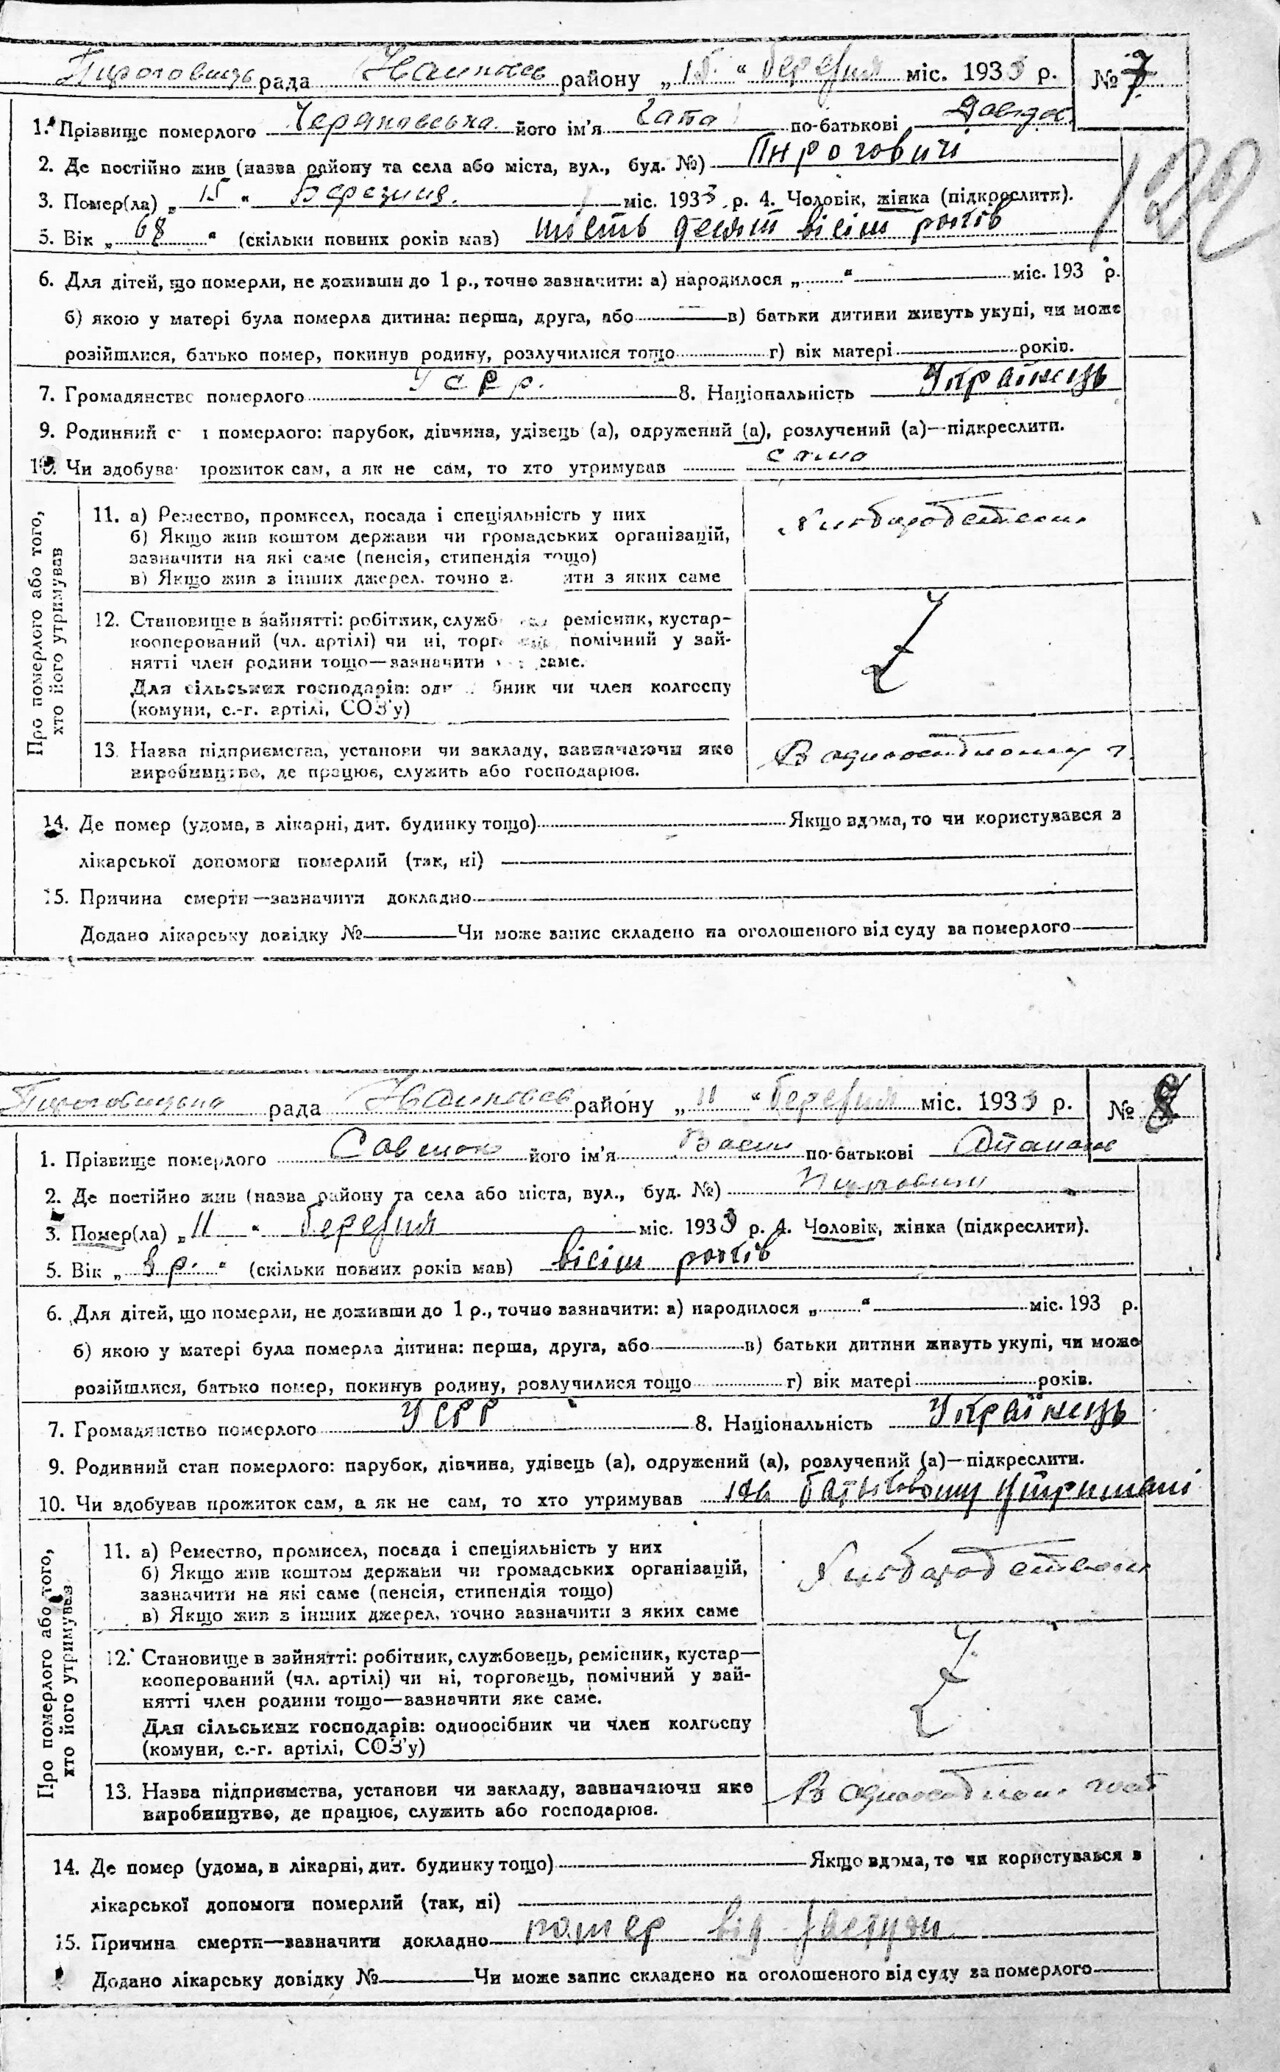 Пироговицьк рада району „15“ березня міс. 1933 р. № 7
1. Прізвище померлого Черяховська його ім'я Гапа по-батькові Давидов
2. Де постійно жив (назва району та села або міста, вул., буд. №) Пироговичі
3. Помер(ла) „15“ Березння міс. 1933 р. 4. Чоловік, жінка (підкреслити).
122
5. Вік „68“ (скільки повних років мав) шість десят вісім років
6. Для дітей, що померли, не доживши до 1 р., точно зазначити: а) народилося „ “ міс. 193 р.
б) якою у матері була померла дитина: перша, друга, або в) батьки дитини живуть укупі, чи може
розійшлися, батько помер, покинув родину, розлучилися тощо г) вік матері років.
7. Громадянство померлого УСРР. 8. Національність Українець
9. Родинний с н померлого: парубок, дівчина, удівець (а), одружений (а), розлучений (а)—підкреслити.
10. Чи здобува прожиток сам, а як не сам, то хто утримував сама
Про померлого або того, хто його утримував
11. а) Ремество, промисел, посада і спеціяльність у них Хліборобством
б) Якщо жив коштом держави чи громадських організацій,
зазначити на які саме (пенсія, стипендія тощо)
в) Якщо жив з інших джерел, точно з ити з яких саме
12. Становище в зайнятті: робітник, служб ремісник, кустар-
кооперований (чл. артілі) чи ні, торг помічний у зай-
нятті член родини тощо—зазначити саме.
Для сільських господарів: од бник чи член колгоспу
(комуни, с.-г. артілі, СОЗ'у)
13. Назва підприємства, установи чи закладу, зазначаючи яке В одноосібному г.
виробництво, де працює, служить або господарює.
14. Де помер (удома, в лікарні, дит. будинку тощо) Якщо вдома, то чи користувався з
лікарської допомоги померлий (так, ні)
15. Причина смерти—зазначити докладно
Додано лікарську довідку № Чи може запис складено на оголошеного від суду за померлого
Пироговицька рада району „11“ березня міс. 1933 р. № 8
1. Прізвище померлого його ім'я Васил по-батькові
2. Де постійно жив (назва району та села або міста, вул., буд. №) Пироговичі
3. Помер(ла) „11“ березня міс. 1933 р. 4. Чоловік, жінка (підкреслити).
5. Вік „8 р.“ (скільки повних років мав) вісім років
6. Для дітей, що померли, не доживши до 1 р., точно зазначити: а) народилося „ “ міс. 193 р.
б) якою у матері була померла дитина: перша, друга, або в) батьки дитини живуть укупі, чи може
розійшлися, батько помер, покинув родину, розлучилися тощо г) вік матері років.
7. Громадянство померлого УСРР 8. Національність Українець
9. Родинний стан померлого: парубок, дівчина, удівець (а), одружений (а), розлучений (а)—підкреслити.
10. Чи здобував прожиток сам, а як не сам, то хто утримував на батьковому утримані
Про померлого або того, хто його утримував
11. а) Ремество, промисел, посада і спеціяльність у них Хліборобством
б) Якщо жив коштом держави чи громадських організацій,
зазначити на які саме (пенсія, стипендія тощо)
в) Якщо жив з інших джерел, точно зазначити з яких саме
12. Становище в зайнятті: робітник, службовець, ремісник, кустар—
кооперований (чл. артілі) чи ні, торговець, помічний у зай-
нятті член родини тощо—зазначити яке саме.
Для сільських господарів: одноосібник чи член колгоспу
(комуни, с.-г. артілі, СОЗ'у)
13. Назва підприємства, установи чи закладу, зазначаючи яке В одноосібном. госп
виробництво, де працює, служить або господарює.
14. Де помер (удома, в лікарні, дит. будинку тощо) Якщо вдома, то чи користувався з
лікарської допомоги померлий (так, ні)
15. Причина смерти—зазначити докладно помер від застуди
Додано лікарську довідку № Чи може запис складено на оголошеного від суду за померлого